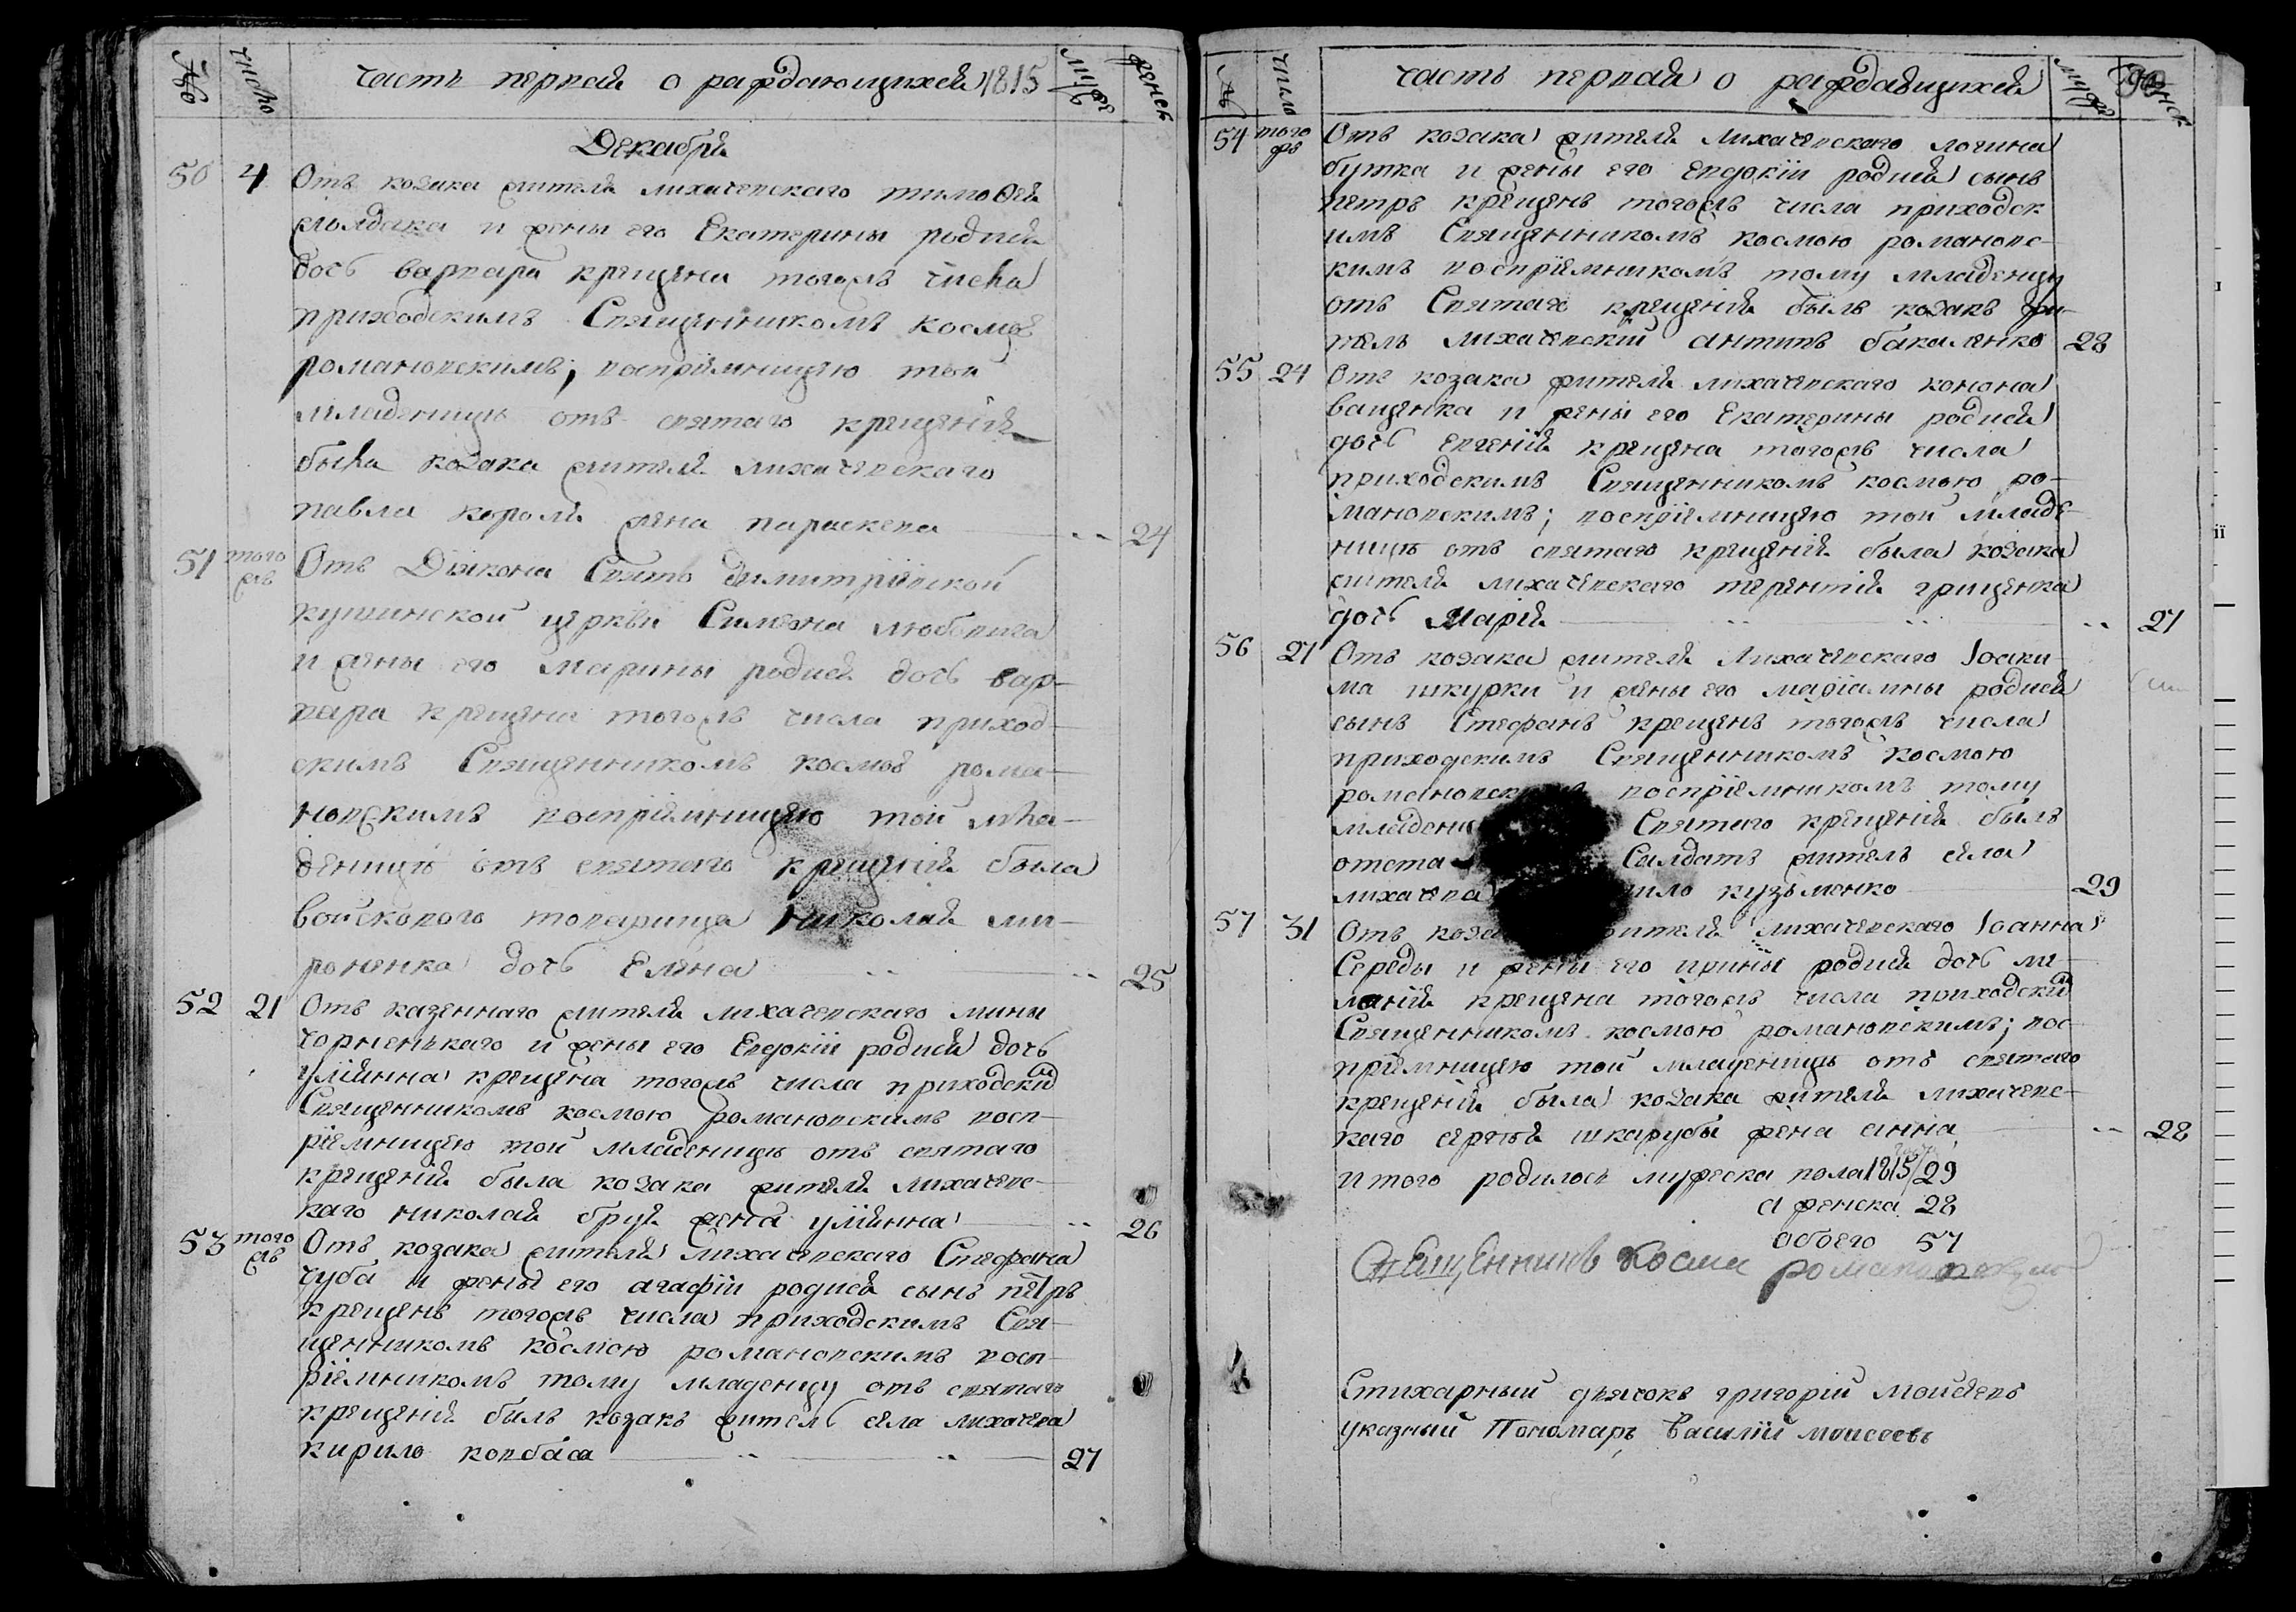 № число часть первая о раждающихся 1815 муж женск
Декабря
50 4 Отъ козака жителя лихачевскаго тимоѳея
жолдака и жены его Екатерины родися
дочь варвара крещена тогожъ числа
приходскимъ Священникомъ космою
романовскимъ; воспріемницею той
младеницы отъ святаго крещенія
была козака жителя лихачевскаго
павла короля жена параскева 24
51 того
жъ Отъ Діякона Свято димитріевской
кушинской церкви Симеона любовича
и жены его марины родися дочь вар-
вара крещена тогожъ числа приход-
скимъ Священникомъ космою рома-
новскимъ воспріемницею той мла-
деницы отъ святаго крещенія была
войсковаго товарища николая ми-
роненка дочь Елена 25
52 21 Отъ казеннаго жителя лихачевскаго мины
чорненькаго и жены его Евдокіи родися дочь
уліянна крещена тогожъ числа приходским
Священникомъ космою романовскимъ восп-
ріемницею той младеницы отъ святаго
крещенія была козака жителя лихачевс-
каго николая бруя жена уліянна 26
53 того
жъ Отъ козака жителя лихачевскаго Стефана
чуба и жены его агафіи родися сынъ петръ
крещенъ тогожъ числа приходскимъ Свя-
щенникомъ космою романовскимъ восп-
ріемникомъ тому младенцу отъ святаго
крещенія былъ козакъ житель села лихачева
кирило ковбаса 27
№ число часть первая о раждающихся муж женск
54 того
жъ Отъ козака жителя лихачевскаго логина
бутка и жены его Евдокіи родися сынъ
петръ крещенъ тогожъ числа приходск
имъ Священникомъ космою романовс-
кимъ воспріемникомъ тому младенцу
отъ Святаго крещенія былъ козакъ жи-
тель лихачевскій антипъ бакаленко 28
55 24 Отъ козака жителя лихачевскаго конона
ващенка и жены его Екатерины родися
дочь евгенія крещена тогожъ числа
приходскимъ Священникомъ космою ро-
мановскимъ; воспріемницею той младе-
ницы отъ святаго крещенія была козака
жителя лихачевскаго терентія грищенка
дочь Марія 27
56 27 Отъ козака жителя лихачевскаго Іоаки-
ма шкурки и жены его магдалины родися
сынъ Стефанъ крещенъ тогожъ числа
приходскимъ Священникомъ космою
романовск воспріемникомъ тому
младен Святаго крещенія былъ
отста Салдатъ житель села
лихачева ило кузьменко 29
57 31 Отъ коза жителя лихачевскаго Іоанна
Середы и жены его ирины родися дочь ме-
ланія крещена тогожъ числа приходским
Священникомъ космою романовскимъ; вос-
пріемницею той младеницы отъ святаго
крещенія была козака жителя лихачевс-
каго сергея шкарубы жена анна 28
итого родилось мужеска пола 1815/29
а женска 28
обоего 57
Священникъ Косма романовскій
Стихарный дьячокъ григорій Моисеевъ
указный Пономарь Василій моисеевъ